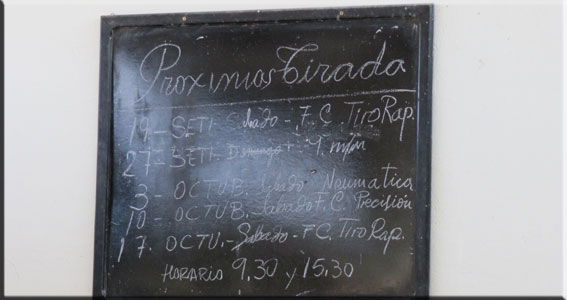 Proximos Tirada
19- SETI. Sabado - F.C. Tiro Rap.
27- SETI- Domingo 9. m/m
3- OCTUB. Sabado Neumatica
10- OCTUB. Sabado F.C. Precisión
17. OCTU.- Sabado - F.C. Tiro Rap.
HORARIO 9,30 y 15,30